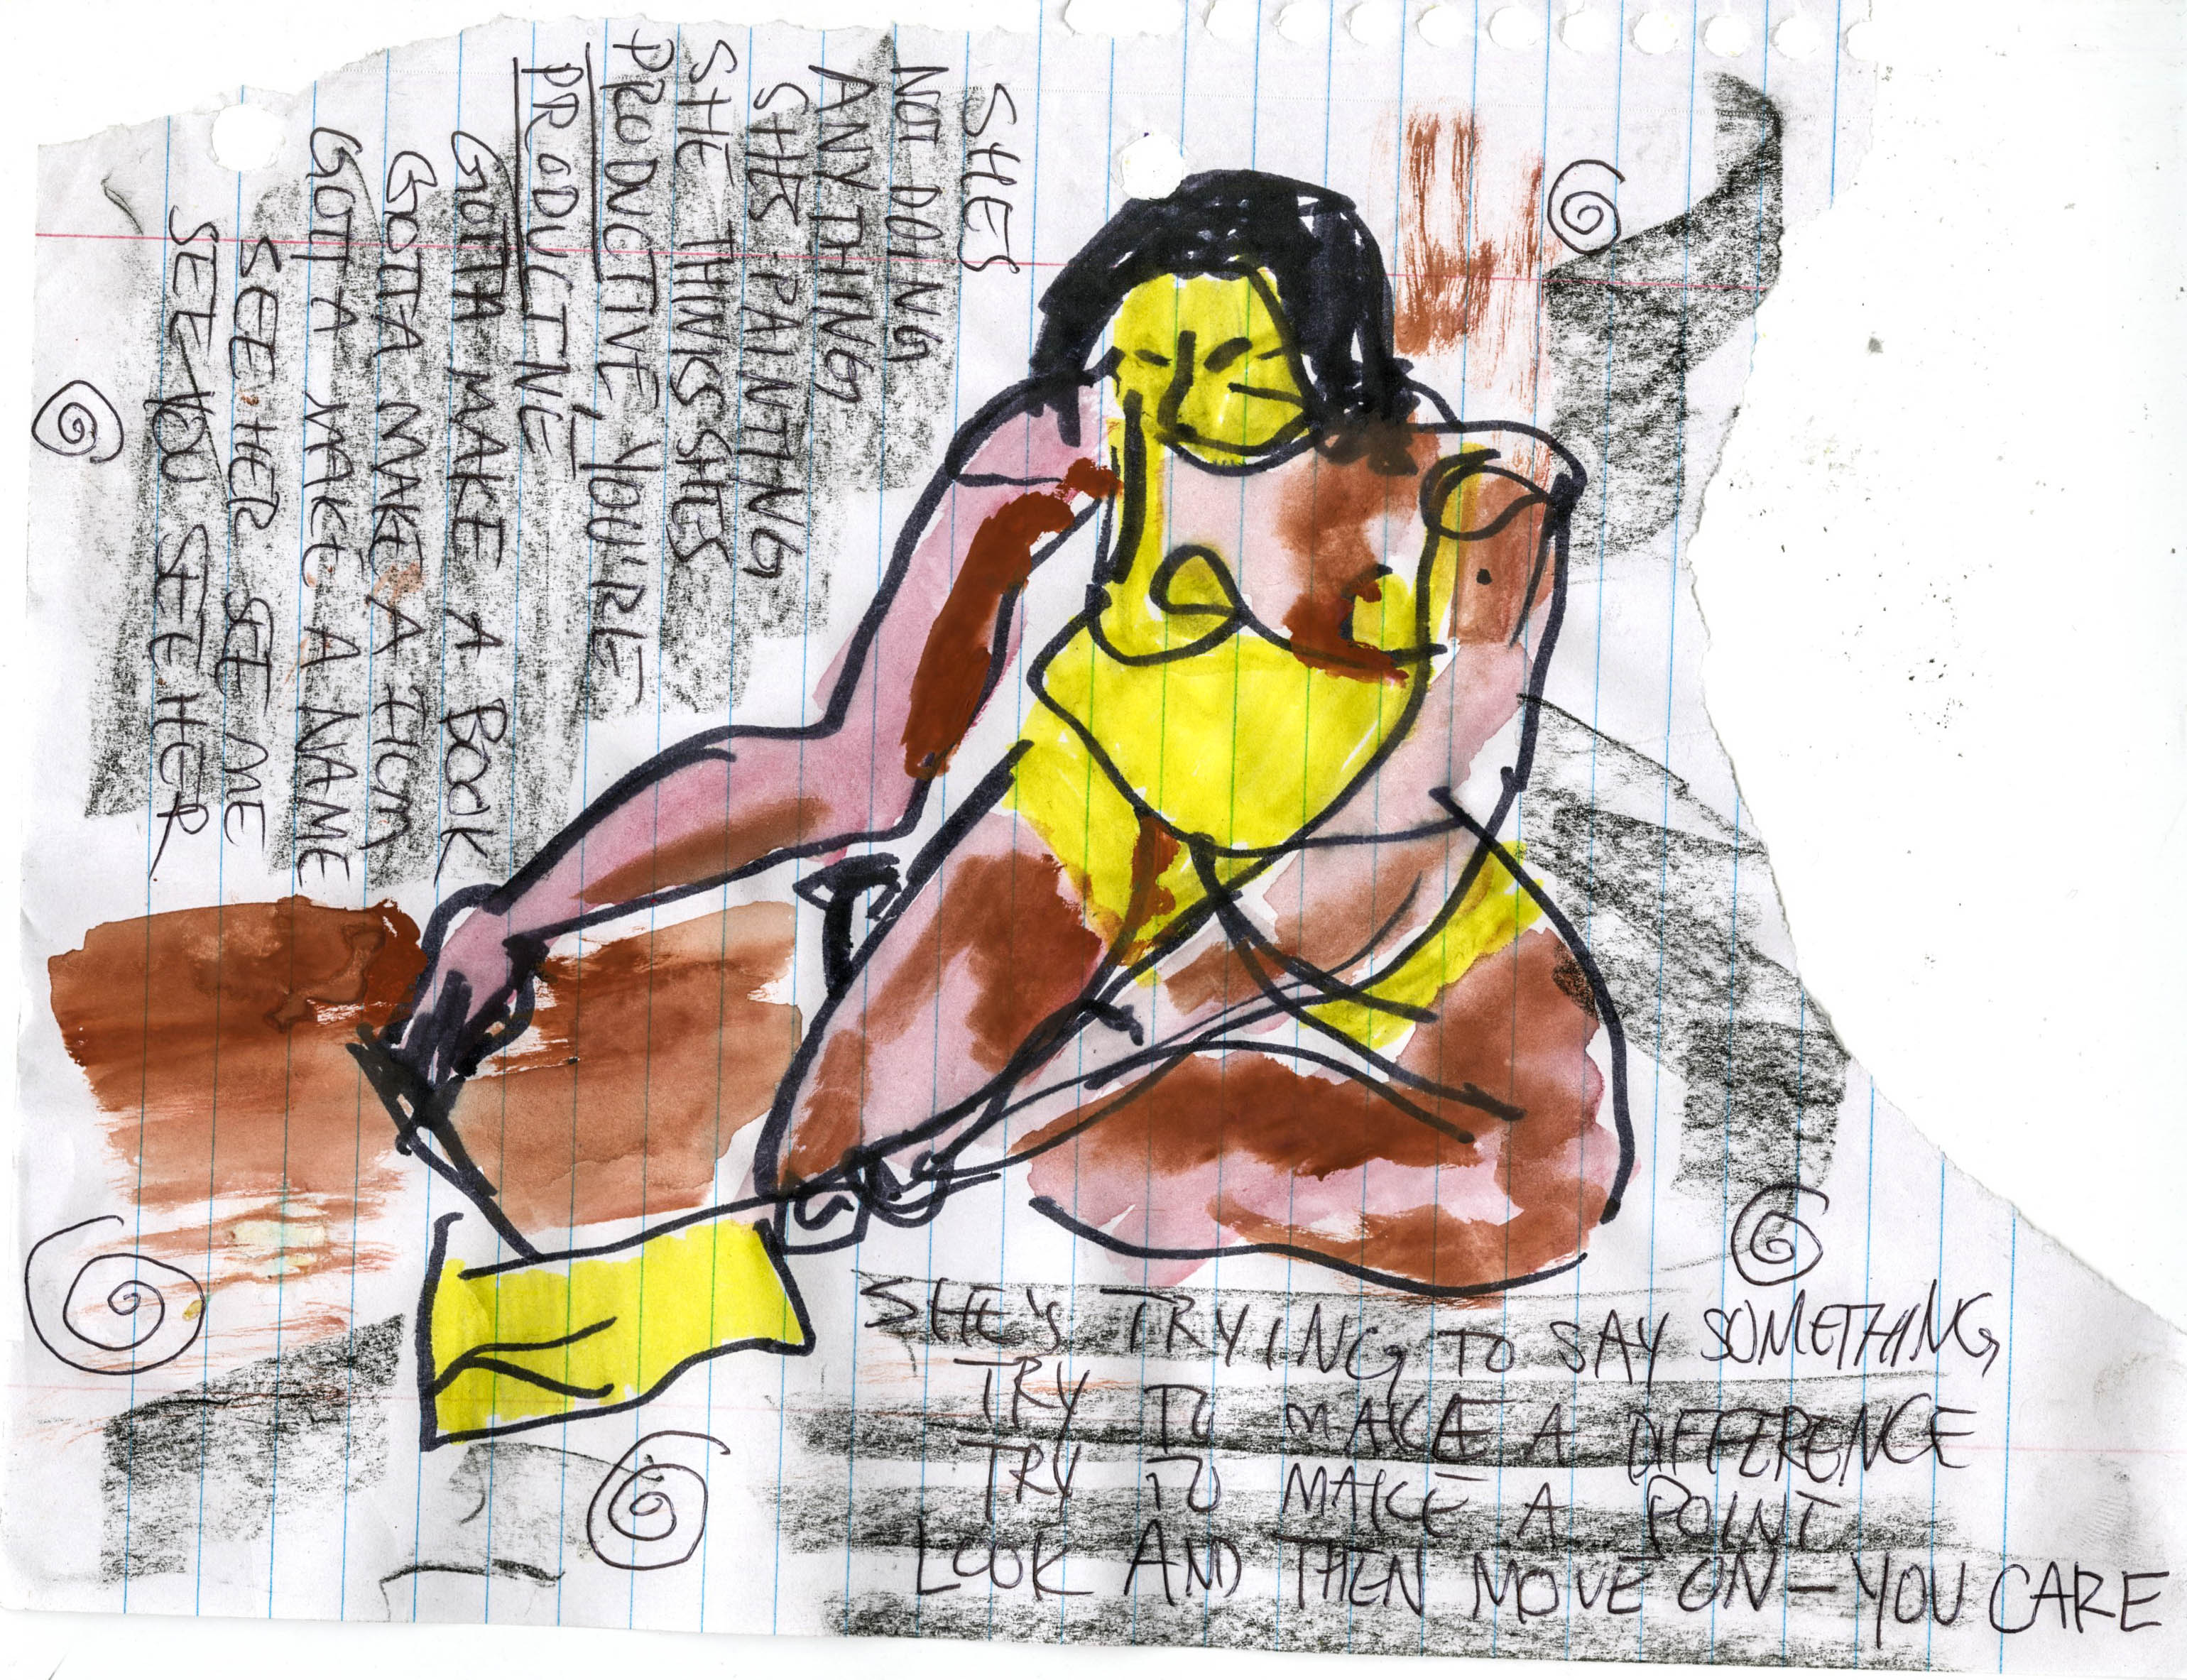 SHES
NOT DOING
ANYTHING
SHES PAINTING
SHE THINKS SHES
PRODUCTIVE, YOURE
PRODUCTIVE
GOTTA MAKE A BOOK
GOTTA MAKE A
GOT A MAKE A NAME
SEE HER SEE ME
SEE YOU SEE HER
SHE'S TRYING TO SAY SOMETHING
TRY TO MAKE A DIFFERENCE
TRY TO MAKE A POINT
LOOK AND THEN MOVE ON - YOU CARE